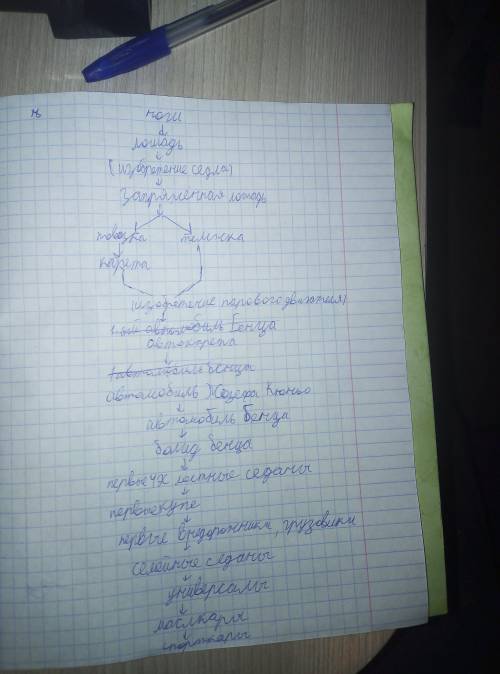 ноги
лошадь
(изобретение седла)
Запряженная лошадь
повозка тележка
карета
(изобретение парового двигателя)
1-ый автомобиль Бенца
автокарета
1 автомобиль бенца
автомобиль Жозефа Кюньо
автомобиль Бенца
болид бенца
первые 4х местные седаны
первые купе
первые внедорожники, грузовики
семейные седаны
универсалы
маслкары
спорткары